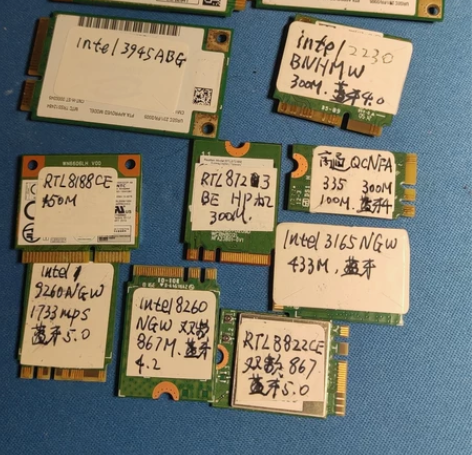 intel 3945ABG
intel 2230
BNHMW
300M. 蓝牙4.0
RTL8188CE
150M
RTL8723
BE HP
300M
高通QCNFA
335 300M
100M. 蓝牙4
Intel 3165NGW
433M. 蓝牙
Intel
9260NGW
1733mps
蓝牙5.0
intel8260
NGW 双频
867M. 蓝牙
4.2
RTL8822CE
双频. 867
蓝牙5.0